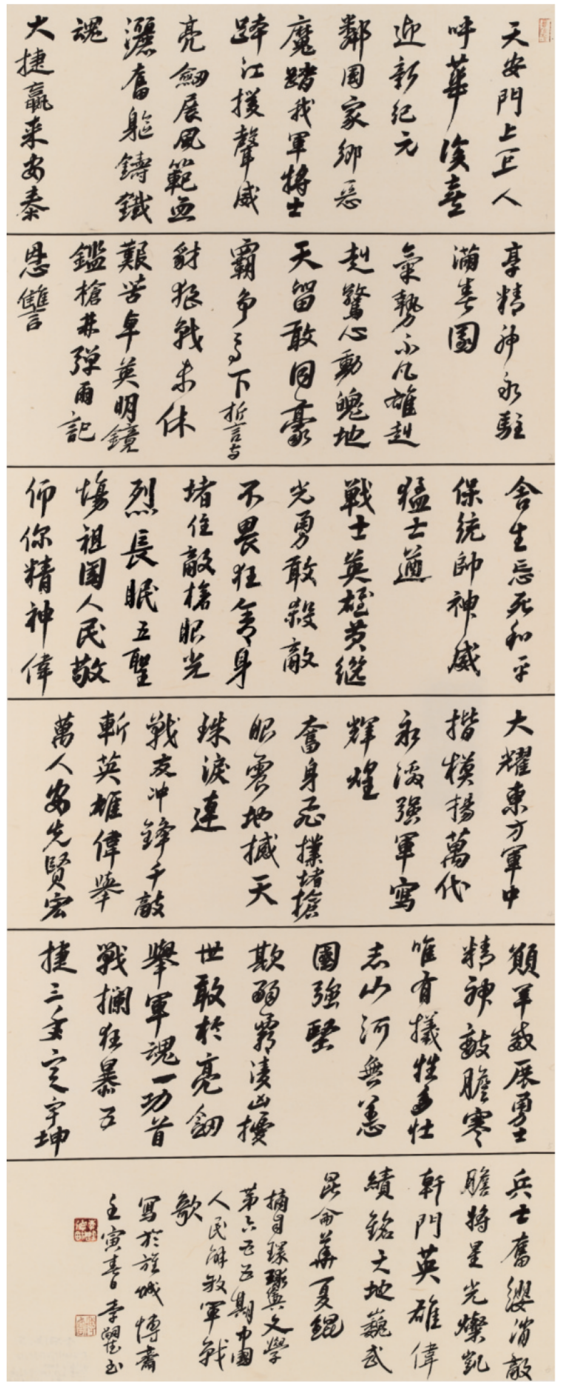 天安門上正人
呼華誕喜
迎新紀元
鄰国家鄉惡
魔踏我軍將士
跨江援聲威
亮劍展風範血
灑奮軀鑄鐵
魂
大捷贏来安泰
享精神永駐
滿春園
氣勢不凡雄赳
赳驚心動魄地
天留敢同豪
霸争高下誓言与
豺狼戰未休
艱苦卓英明鏡
鑑槍林弹雨記
恩讐
舍生忘死和平
保統帥神威
猛士遒
戰士英雄黄继
光勇敢殺敵
不畏狂舍身
堵住敵槍眼光
烈長眠五聖
慯祖國人民敬
仰你精神偉
大耀東方軍中
揩模揚萬代
永添强軍寫
輝煌
奮身飛撲堵槍
眼震地撼天
珠淚連
戰友冲鋒千敵
斬英雄偉舉
萬人安先賢宏
願軍威展勇士
精神敵膽寒
唯有犧牲多壮
志山河無恙
國强堅
欺弱霸凌凶擾
世敢於亮劍
舉軍魂一功首
戰攔狂暴五
捷三年定宇坤
兵士奮纓消敵
膽將星光燦凱
軒門英雄偉
績銘大地巍武
昆侖華夏鯤
摘自環球文學
第六五五期中国
人民解放軍戰
歌
寫於旌城愽斋
壬寅春日李书